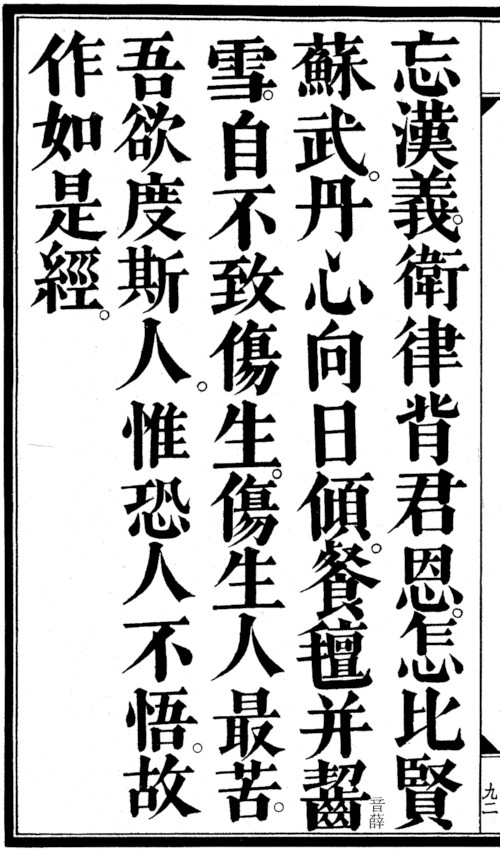 忘漢義。衛律背君恩。怎比賢
蘇武。丹心向日傾。餐氈并齧音薛
雪。自不致傷生。傷生人最苦。
吾欲度斯人。惟恐人不悟。故
作如是經。
九二